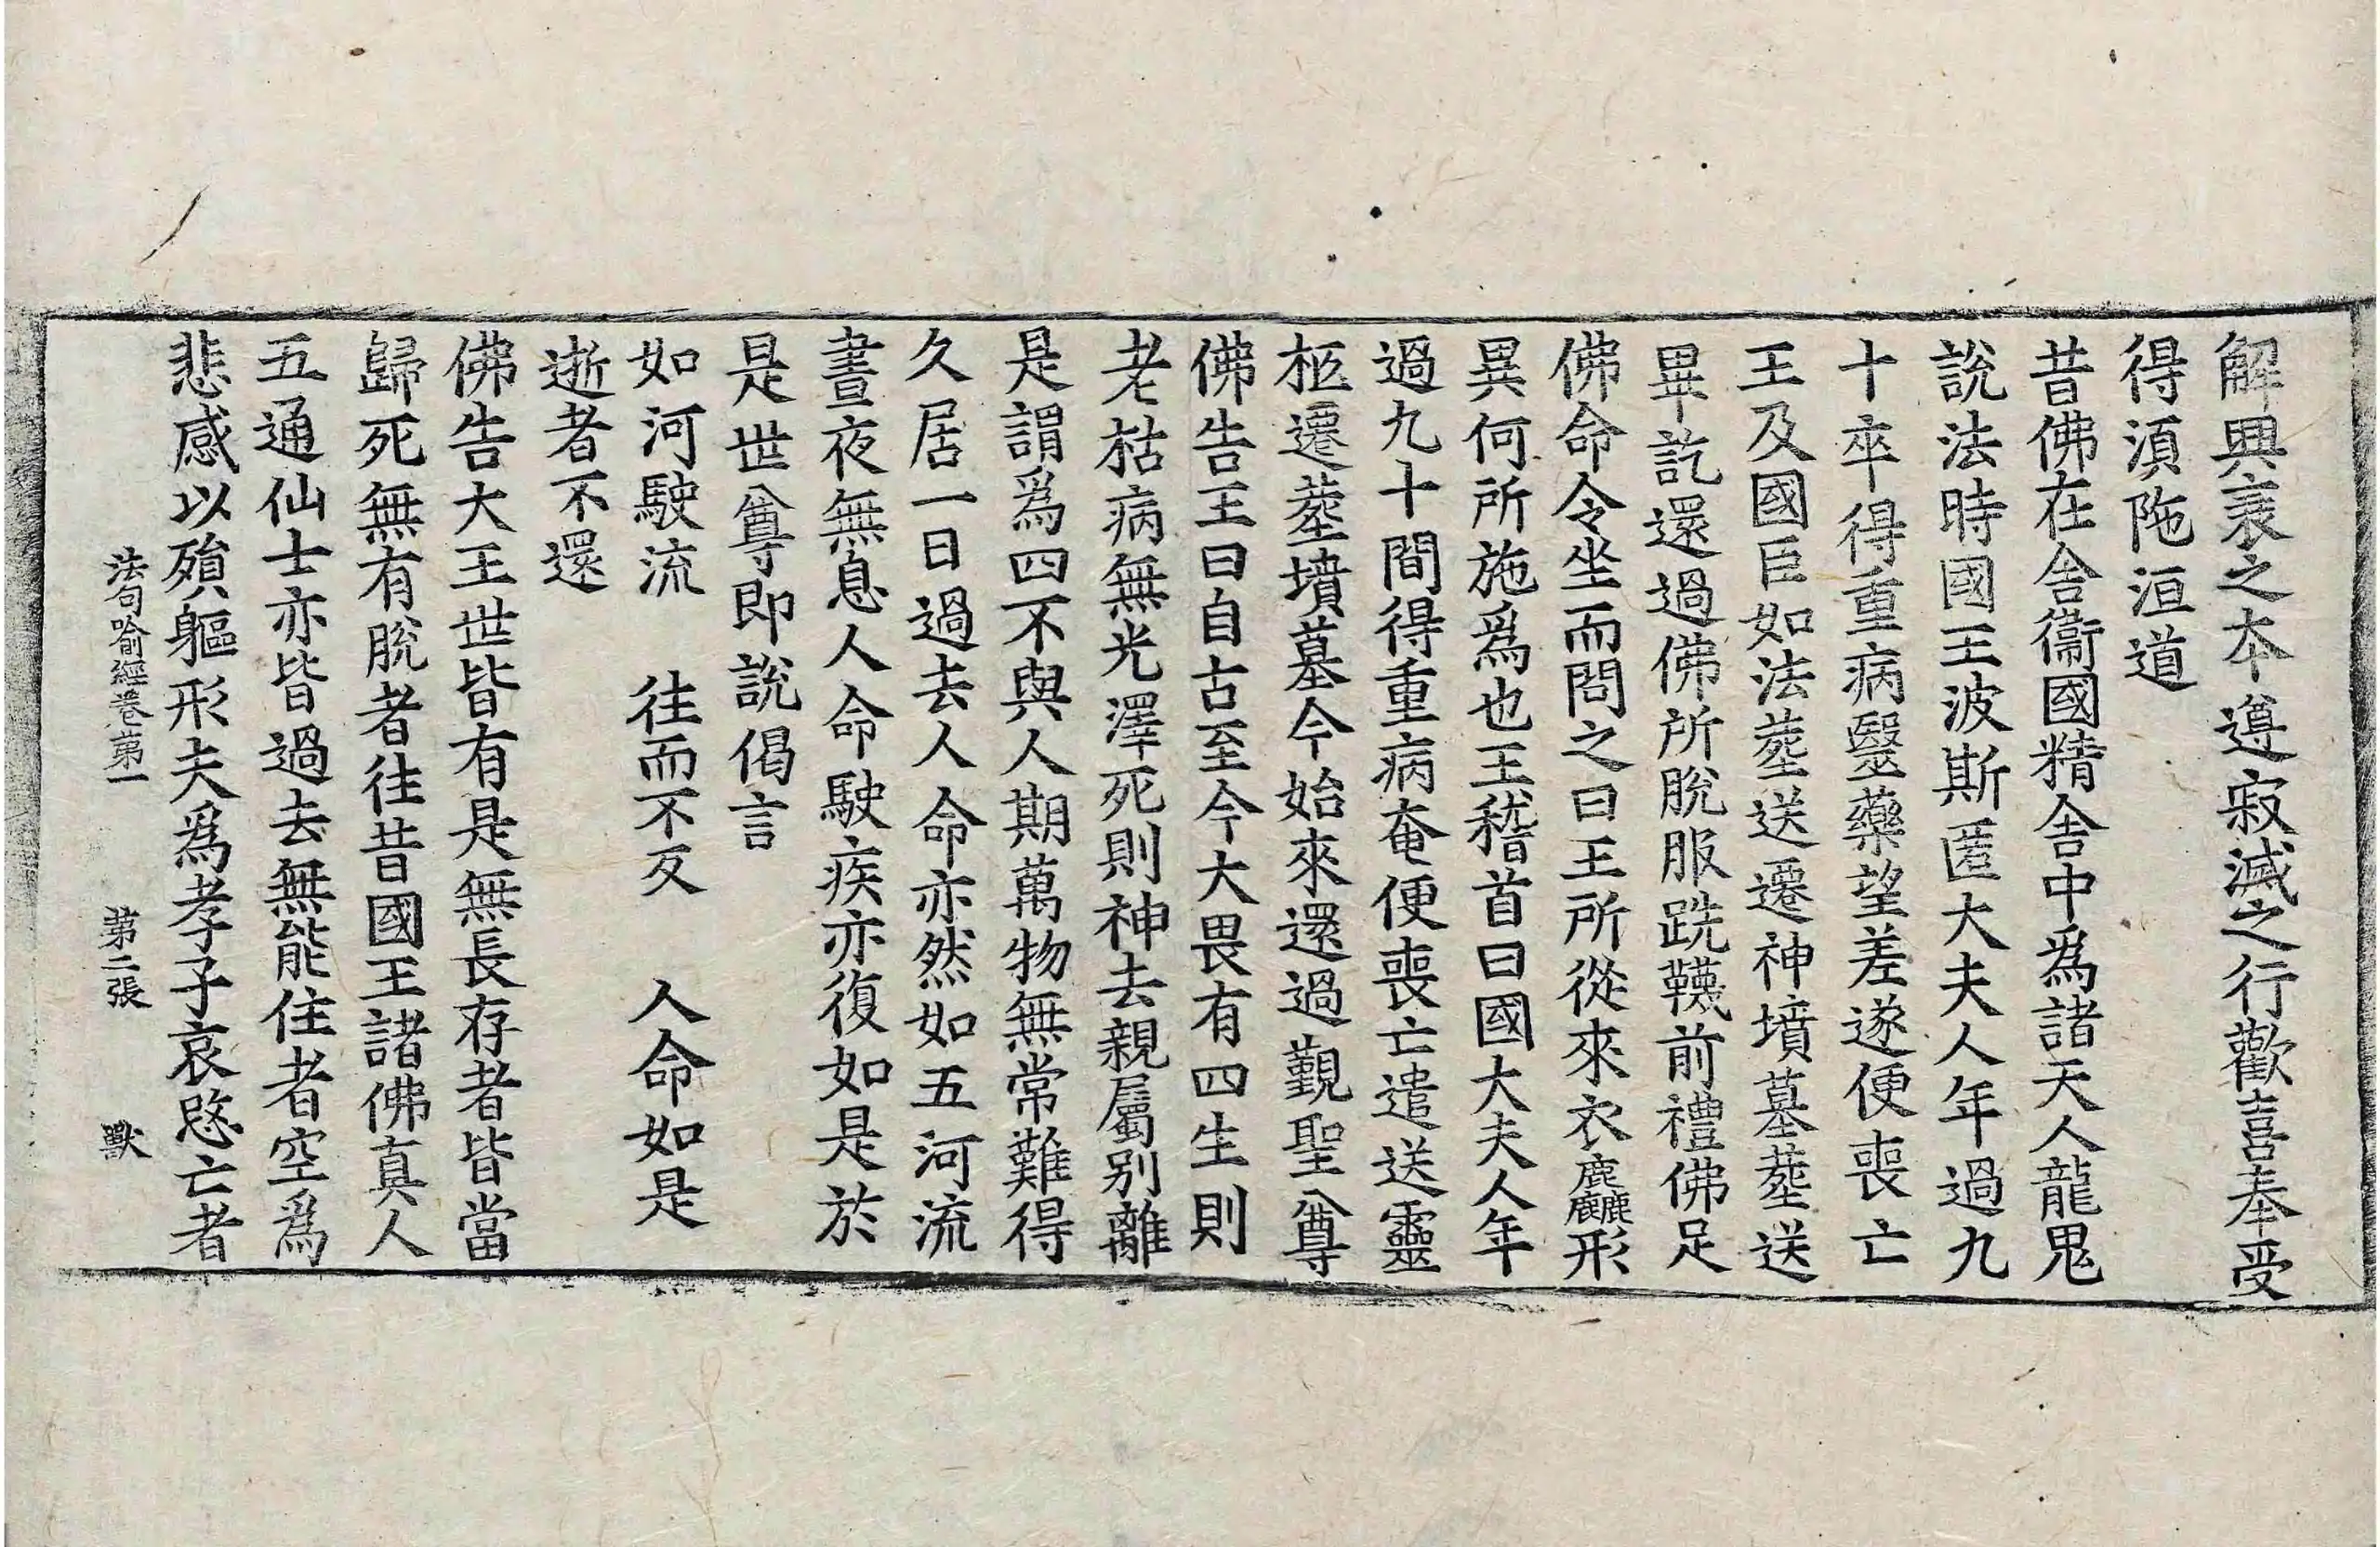 解興衰之本遵寂滅之行歡喜奉受
得湏陁洹道
昔佛在舍衞國精舍中爲諸天人龍鬼
說法時國王波斯匿大夫人年過九
十卒得重病醫藥望差遂便喪亡
王及國臣如法塟送遷神墳墓塟送
畢訖還過佛所脫服跣韈前禮佛足
佛命令坐而問之曰王所從來衣麤形
異何所施爲也王稽首曰國大夫人年
過九十間得重病奄便喪亡遣送靈
柩遷塟墳墓今始來還過覲聖尊
佛告王曰自古至今大畏有四生則
老枯病無光澤死則神去親屬别離
是謂爲四不與人期萬物無常難得
久居一日過去人命亦然如五河流
晝夜無息人命駛疾亦復如是於
是世尊即說偈言
如河駛流　往而不反　人命如是
逝者不還
佛告大王世皆有是無長存者皆當
歸死無有脫者往昔國王諸佛真人
五通仙士亦皆過去無能住者空爲
悲感以殞軀形夫爲孝子哀愍亡者
法句喻經卷苐一　苐二張　獸